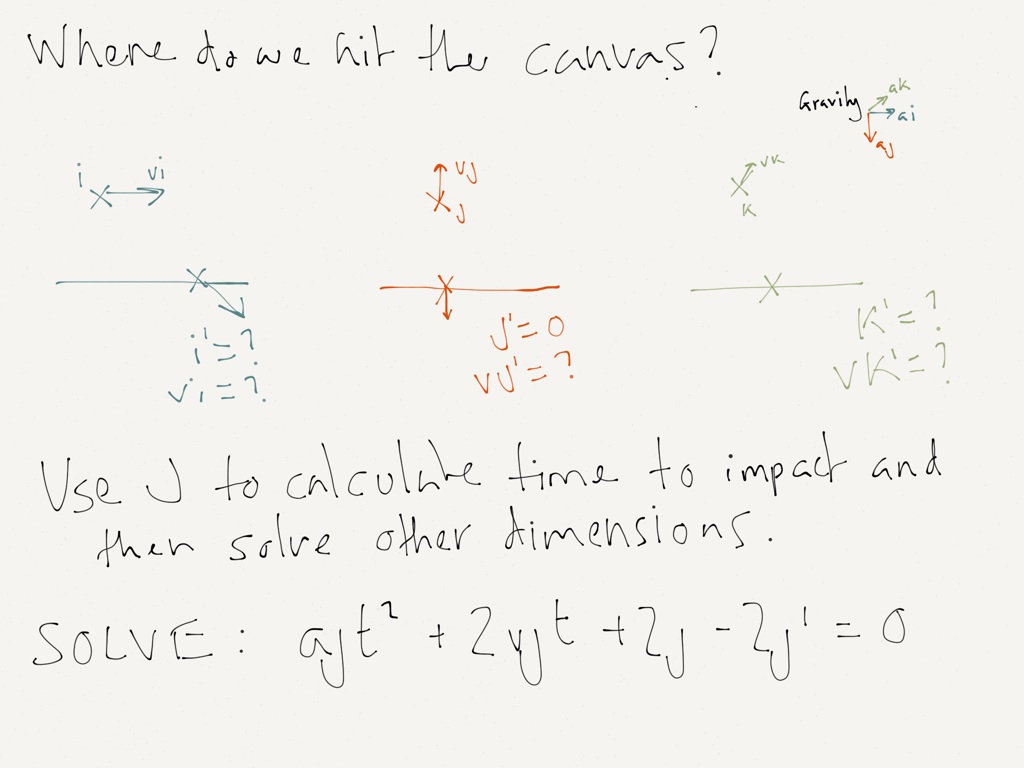 Where do we hit the canvas?
Gravity
ak
ai
aj
i
vi
vj
j
vk
k
i' = ?
vi = ?
j' = 0
vj' = ?
k' = ?
vk' = ?
Use j to calculate time to impact and
then solve other dimensions.
SOLVE: ajt² + 2vjt + 2j - 2j' = 0